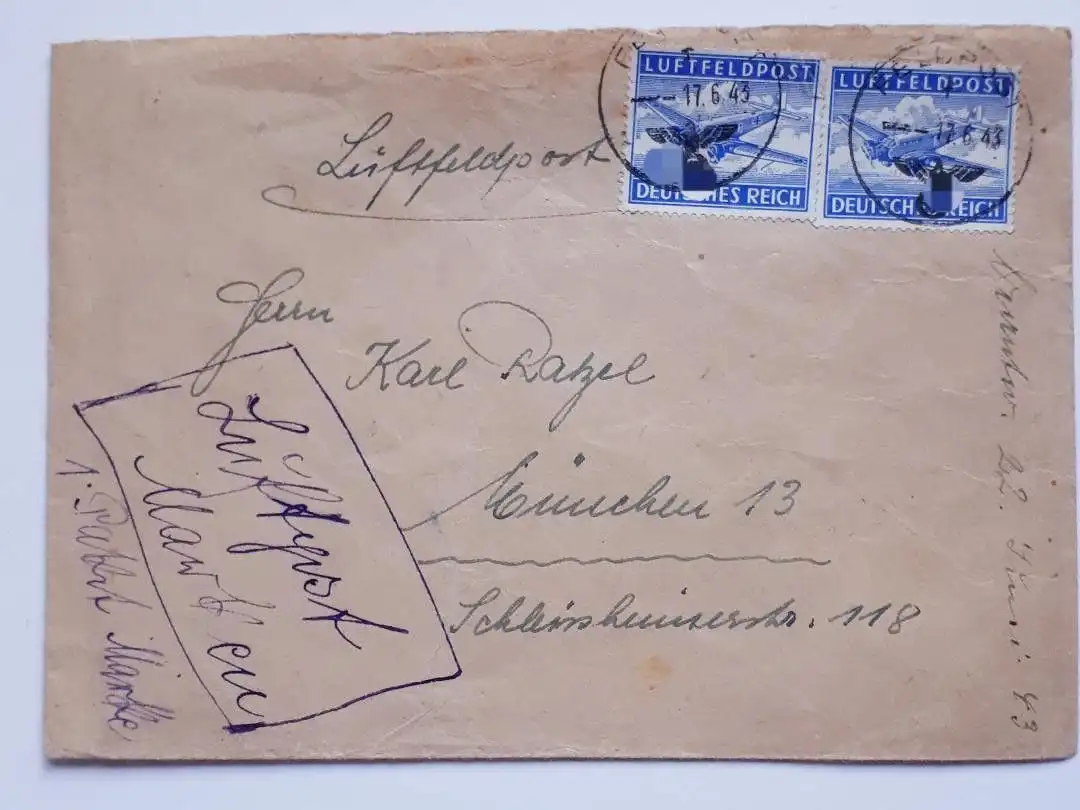 LUFTFELDPOST
17.6.43
DEUTSCHES REICH
FELDPOST
LUFTFELDPOST
17.6.43
DEUTSCHES REICH
Luftfeldpost
Herrn
Karl Ratzel
München 13
Schleissheimerstr. 118
Luftpost
Marken
1. Marke
22. Juni 43